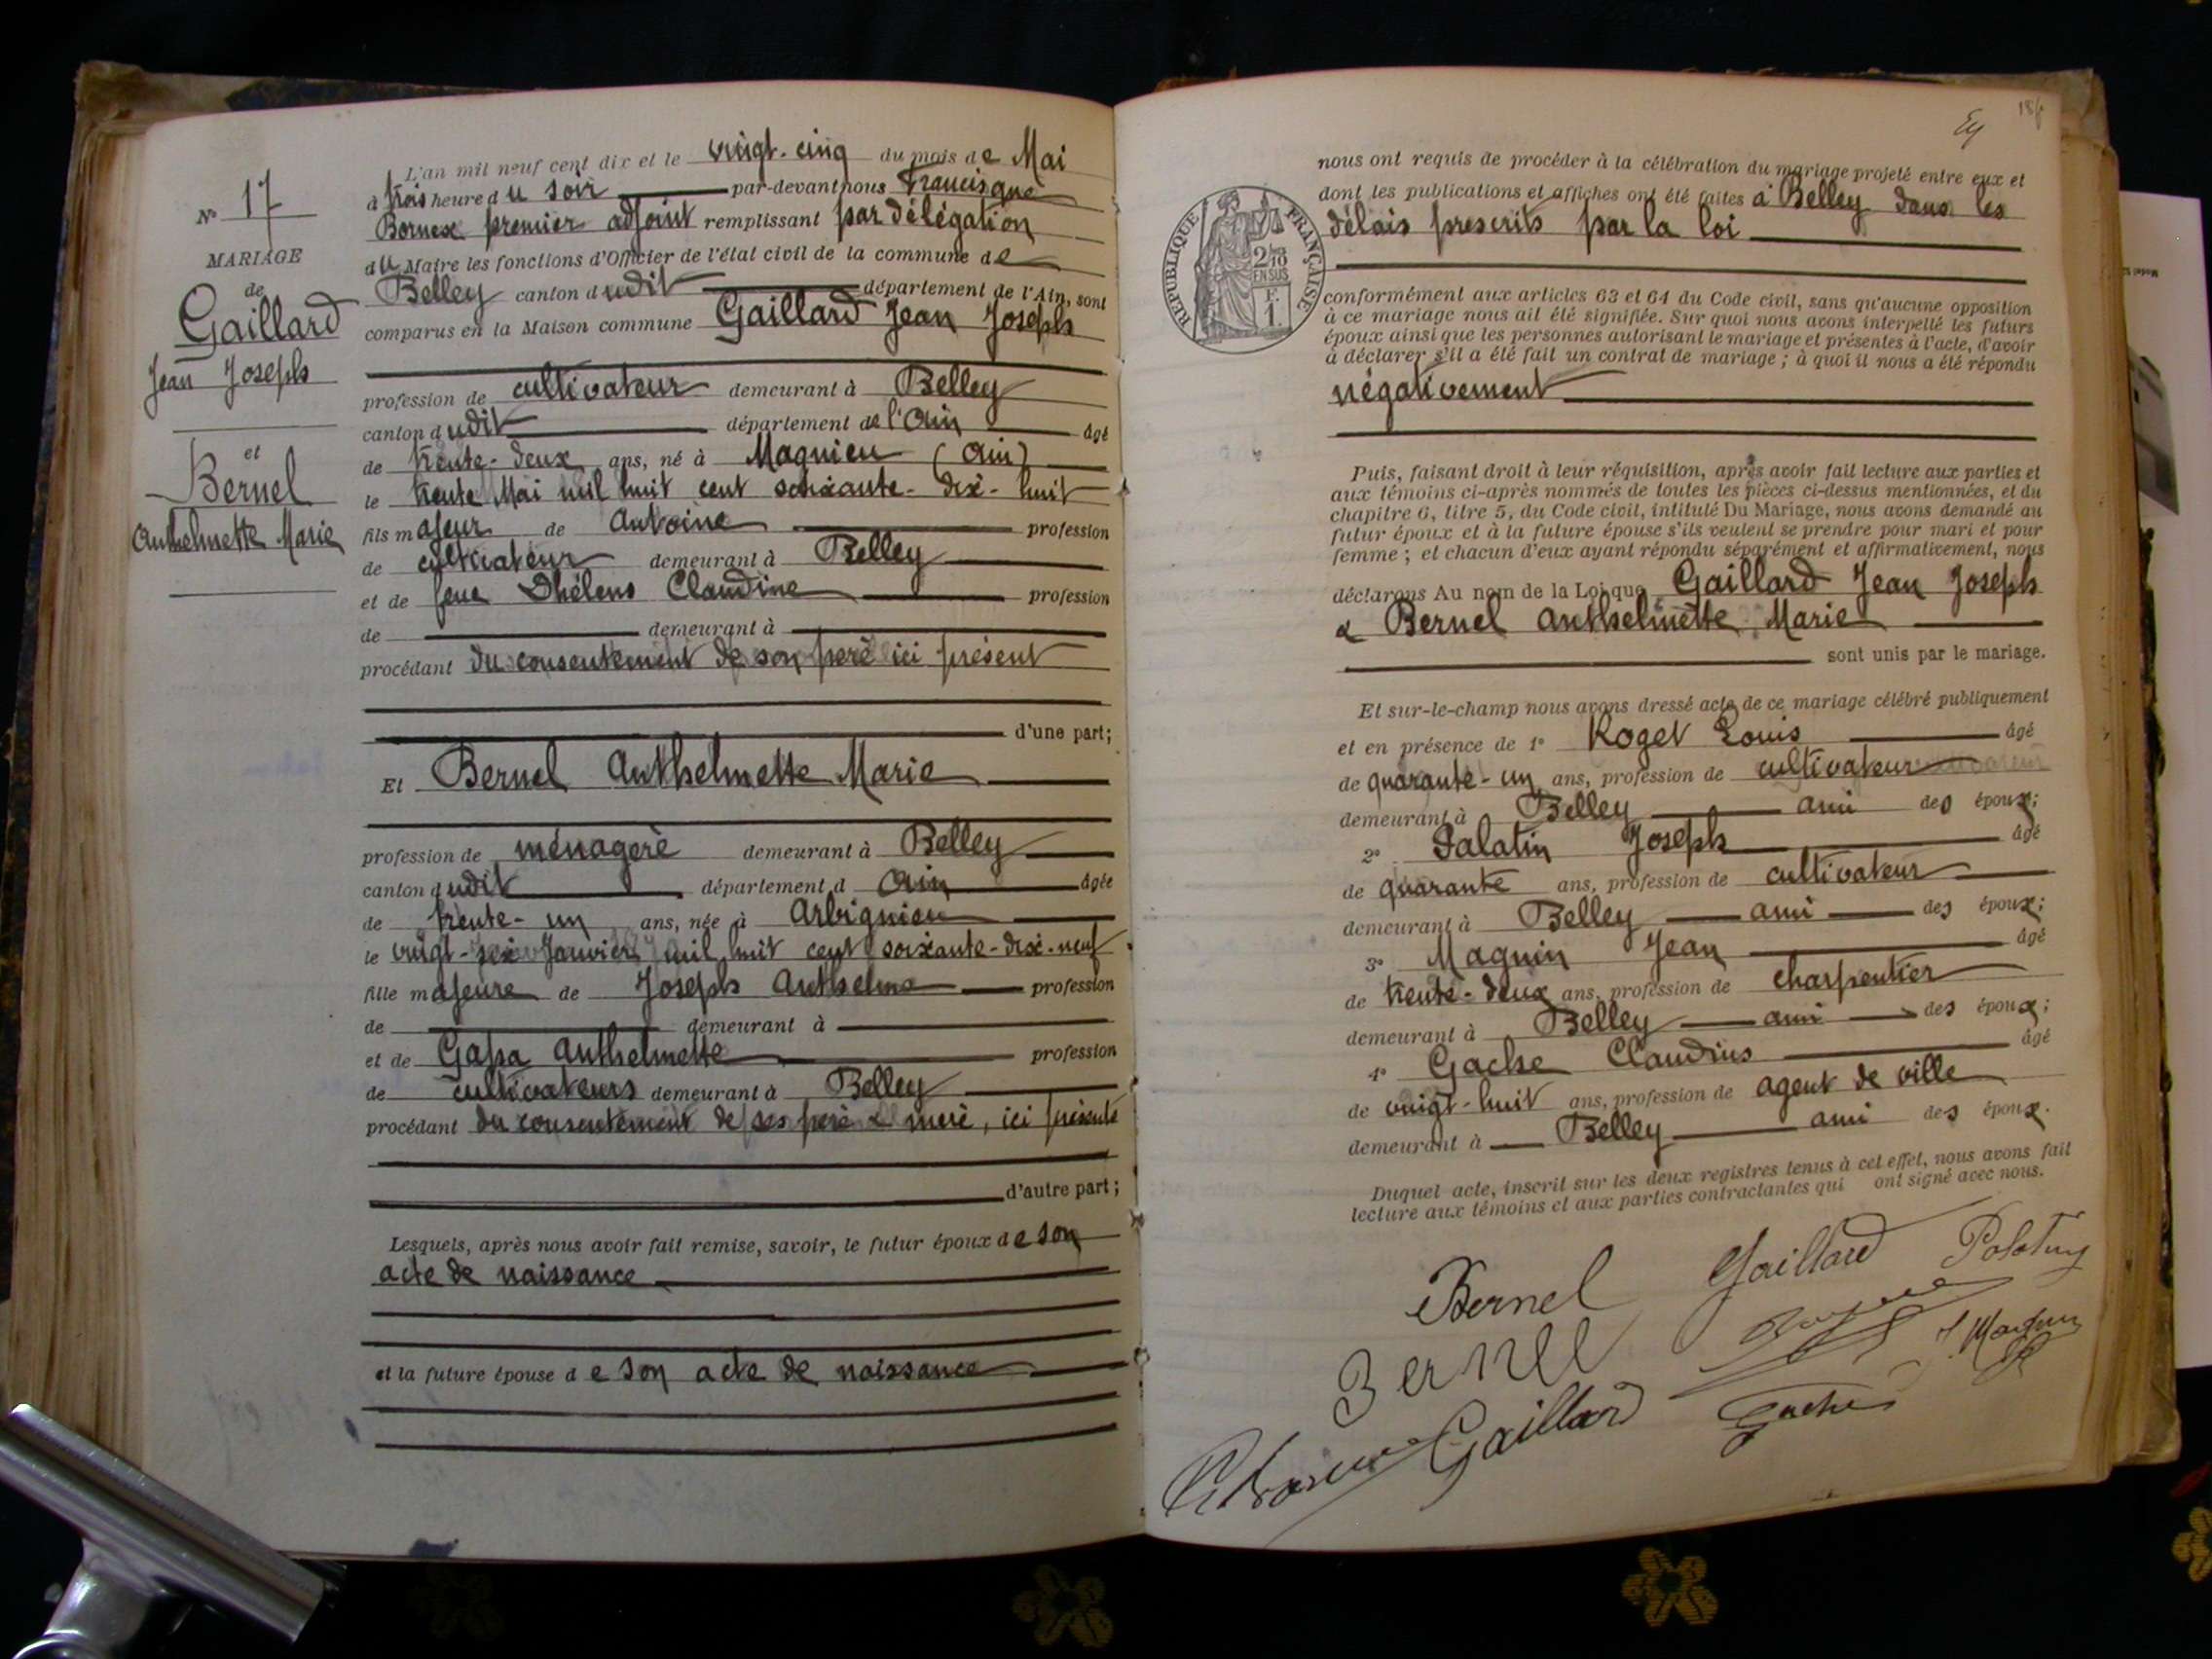 N° 17
MARIAGE
de
Gaillard
Jean Joseph
et
Bernel
Anthelmette Marie
L'an mil neuf cent dix et le vingt-cinq du mois de Mai
à trois heure du soir par-devant nous Francisque
Bornex premier adjoint remplissant par délégation
du Maire les fonctions d'Officier de l'état civil de la commune de
Belley canton dudit département de l'Ain, sont
comparus en la Maison commune Gaillard Jean Joseph
profession de cultivateur demeurant à Belley
canton dudit département de l'Ain âgé
de trente-deux ans, né à Magnieu (Ain)
le trente Mai mil huit cent soixante-dix-huit
fils majeur de Antoine profession
de cultivateur demeurant à Belley
et de feue Dhélens Claudine profession
de demeurant à
procédant du consentement de son père ici présent
d'une part;
Et Bernel Anthelmette Marie
profession de ménagère demeurant à Belley
canton dudit département d Ain âgée
de trente-un ans, née à Arbignieu
le vingt-six Janvier mil huit cent soixante-dix-neuf
fille majeure de Joseph Anthelme profession
de demeurant à
et de Anthelmette profession
de cultivateurs demeurant à Belley
procédant du consentement de ses père & mère, ici présents
d'autre part;
Lesquels, après nous avoir fait remise, savoir, le futur époux de son
acte de naissance
et la future épouse de son acte de naissance
nous ont requis de procéder à la célébration du mariage projeté entre eux et
dont les publications et affiches ont été faites à Belley dans les
délais prescrits par la loi
REPUBLIQUE FRANÇAISE
2/10
EN SUS
F.
1.
conformément aux articles 63 et 64 du Code civil, sans qu'aucune opposition
à ce mariage nous ait été signifiée. Sur quoi nous avons interpellé les futurs
époux ainsi que les personnes autorisant le mariage et présentes à l'acte, d'avoir
à déclarer s'il a été fait un contrat de mariage ; à quoi il nous a été répondu
négativement
Puis, faisant droit à leur réquisition, après avoir fait lecture aux parties et
aux témoins ci-après nommés de toutes les pièces ci-dessus mentionnées, et du
chapitre 6, titre 5, du Code civil, intitulé Du Mariage, nous avons demandé au
futur époux et à la future épouse s'ils veulent se prendre pour mari et pour
femme ; et chacun d'eux ayant répondu séparément et affirmativement, nous
déclarons Au nom de la Loi que Gaillard Jean Joseph
& Bernel Anthelmette Marie
sont unis par le mariage.
Et sur-le-champ nous avons dressé acte de ce mariage célébré publiquement
et en présence de 1° Roget Louis âgé
de quarante-un ans, profession de cultivateur
demeurant à Belley ami des époux;
2° Palatin Joseph âgé
de quarante ans, profession de cultivateur
demeurant à Belley ami des époux;
3° Magnin Jean âgé
de trente-deux ans, profession de charpentier
demeurant à Belley ami des époux;
4° Gache Claudius âgé
de vingt-huit ans, profession de agent de ville
demeurant à Belley ami des époux.
Duquel acte, inscrit sur les deux registres tenus à cet effet, nous avons fait
lecture aux témoins et aux parties contractantes qui ont signé avec nous.
Bernel Gaillard
Bernel
Gaillard Gache